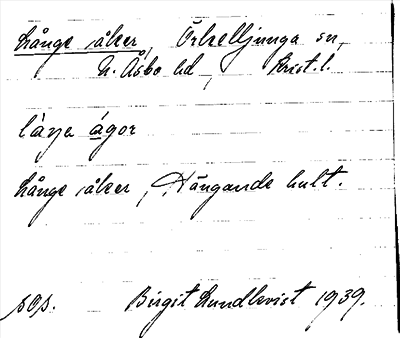 Långe åker, Örkelljunga sn,
N. Åsbo hd, Krist. l.
låŋa ågor
Långe åker, Hängande hult.
sop. Birgit Lundkvist 1939.